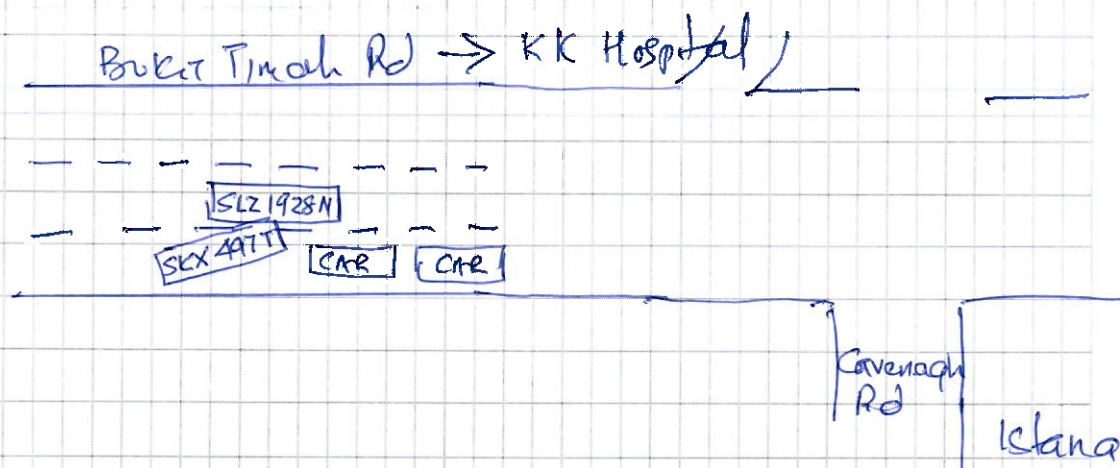 Bukit Timah Rd → KK Hospital
SLZ 1928N
SKX 497T
CAR
CAR
Cavenagh
Rd
Istana